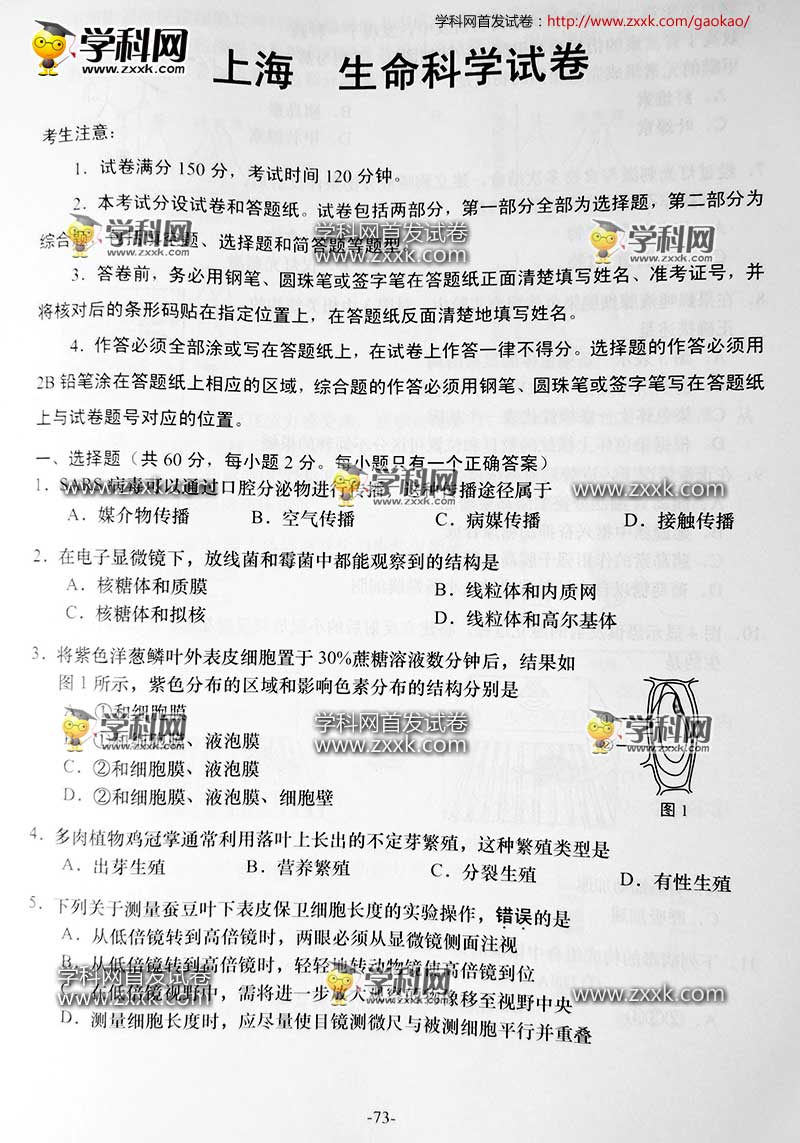 学科网首发试卷：http://www.zxxk.com/gaokao/
学科网
www.zxxk.com
上海 生命科学试卷
考生注意：
1．试卷满分 150 分，考试时间 120 分钟。
2．本考试分设试卷和答题纸。试卷包括两部分，第一部分全部为选择题，第二部分为
综合题、选择题和简答题等题型
学科网 www.zxxk.com
学科网首发试卷 www.zxxk.com
学科网 www.zxxk.com
3．答卷前，务必用钢笔、圆珠笔或签字笔在答题纸正面清楚填写姓名、准考证号，并
将核对后的条形码贴在指定位置上，在答题纸反面清楚地填写姓名。
4．作答必须全部涂或写在答题纸上，在试卷上作答一律不得分。选择题的作答必须用
2B 铅笔涂在答题纸上相应的区域，综合题的作答必须用钢笔、圆珠笔或签字笔写在答题纸
上与试卷题号对应的位置。
一、选择题（共 60 分，每小题 2 分。每小题只有一个正确答案）
1．SARS 病毒可以通过口腔分泌物进行传播，这种传播途径属于
学科网首发试卷 www.zxxk.com
学科网 www.zxxk.com
学科网首发试卷 www.zxxk.com
A．媒介物传播 B．空气传播 C．病媒传播 D．接触传播
2．在电子显微镜下，放线菌和霉菌中都能观察到的结构是
A．核糖体和质膜 B．线粒体和内质网
C．核糖体和拟核 D．线粒体和高尔基体
3．将紫色洋葱鳞叶外表皮细胞置于 30%蔗糖溶液数分钟后，结果如
图 1 所示，紫色分布的区域和影响色素分布的结构分别是
A．①和细胞膜
B．①和细胞膜、液泡膜
C．②和细胞膜、液泡膜
D．②和细胞膜、液泡膜、细胞壁
学科网 www.zxxk.com
学科网首发试卷 www.zxxk.com
学科网 www.zxxk.com
②
图 1
4．多肉植物鸡冠掌通常利用落叶上长出的不定芽繁殖，这种繁殖类型是
A．出芽生殖 B．营养繁殖 C．分裂生殖 D．有性生殖
5．下列关于测量蚕豆叶下表皮保卫细胞长度的实验操作，错误的是
A．从低倍镜转到高倍镜时，两眼必须从显微镜侧面注视
B．从低倍镜转到高倍镜时，轻轻地转动物镜使高倍镜到位
C．在低倍镜视野中，需将进一步放大观察的物像移至视野中央
D．测量细胞长度时，应尽量使目镜测微尺与被测细胞平行并重叠
学科网首发试卷 www.zxxk.com
学科网 www.zxxk.com
学科网首发试卷 www.zxxk.com
-73-